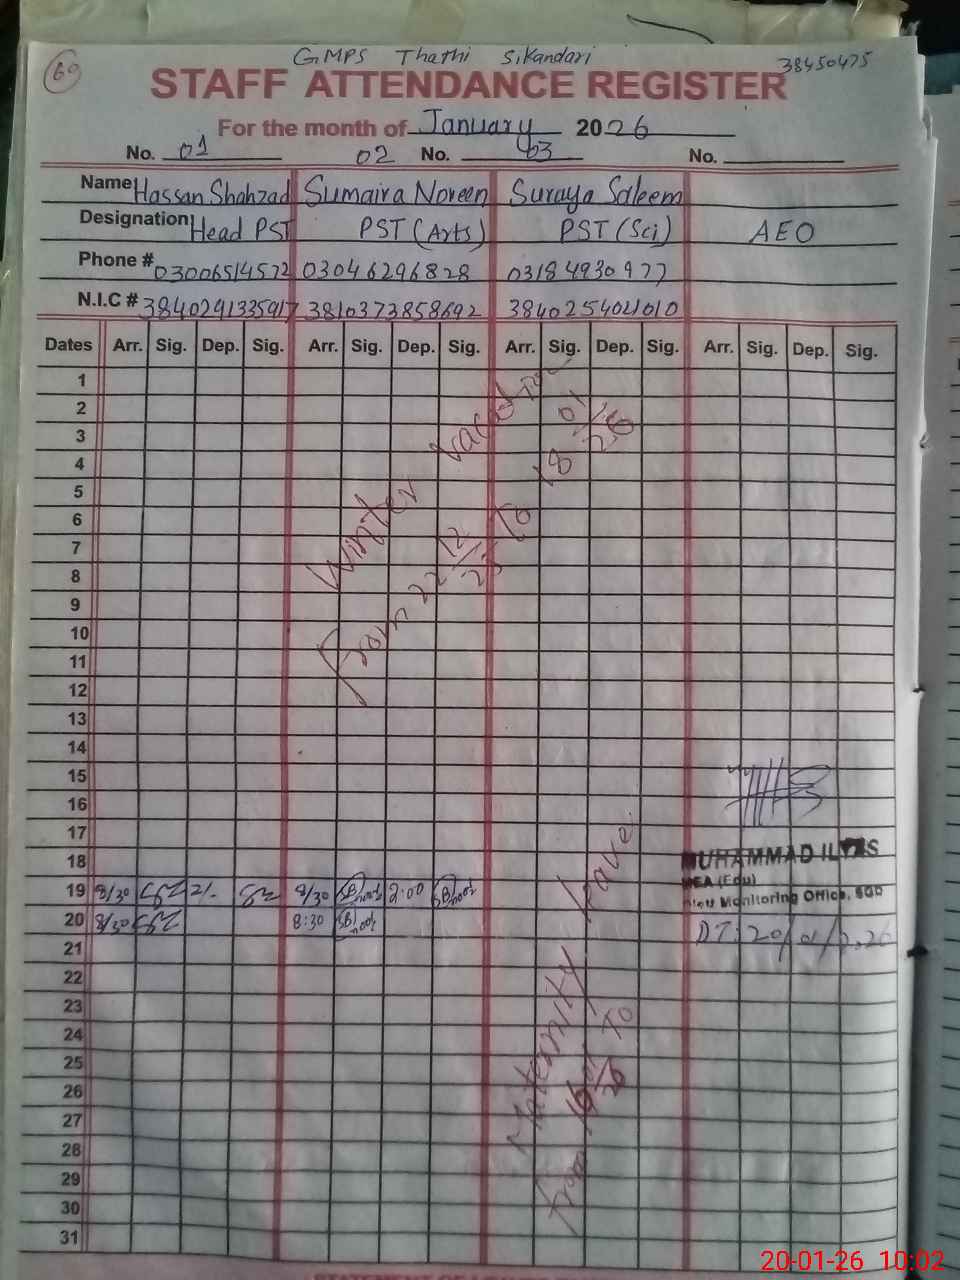 69
GMPS Thathi Sikandari 38450475
STAFF ATTENDANCE REGISTER
For the month of January 2026
No. 01 02 No. 03 No.
Name Hassan Shahzad Sumaira Noreen Suraya Saleem
Designation Head PST PST (Arts) PST (Sci) AEO
Phone # 03006514572 03046296828 03184930977
N.I.C # 3840291335917 3810373858692 3840254021010
Dates Arr. Sig. Dep. Sig. Arr. Sig. Dep. Sig. Arr. Sig. Dep. Sig. Arr. Sig. Dep. Sig.
1
2
3
4
5
6
7
8
9
10
11
12
13
14
15
16
17
18
19 8/30 2/- 8/30 2:00
20 8/30 8:30
21
22
23
24
25
26
27
28
29
30
31
Winter vacation
From 22 12/25 To 18 01/26
Maternity leave
From To
MUHAMMAD ILYAS
MEA (Edu)
Monitoring Office, SGD
DT: 20/01/2026
20-01-26 10:02